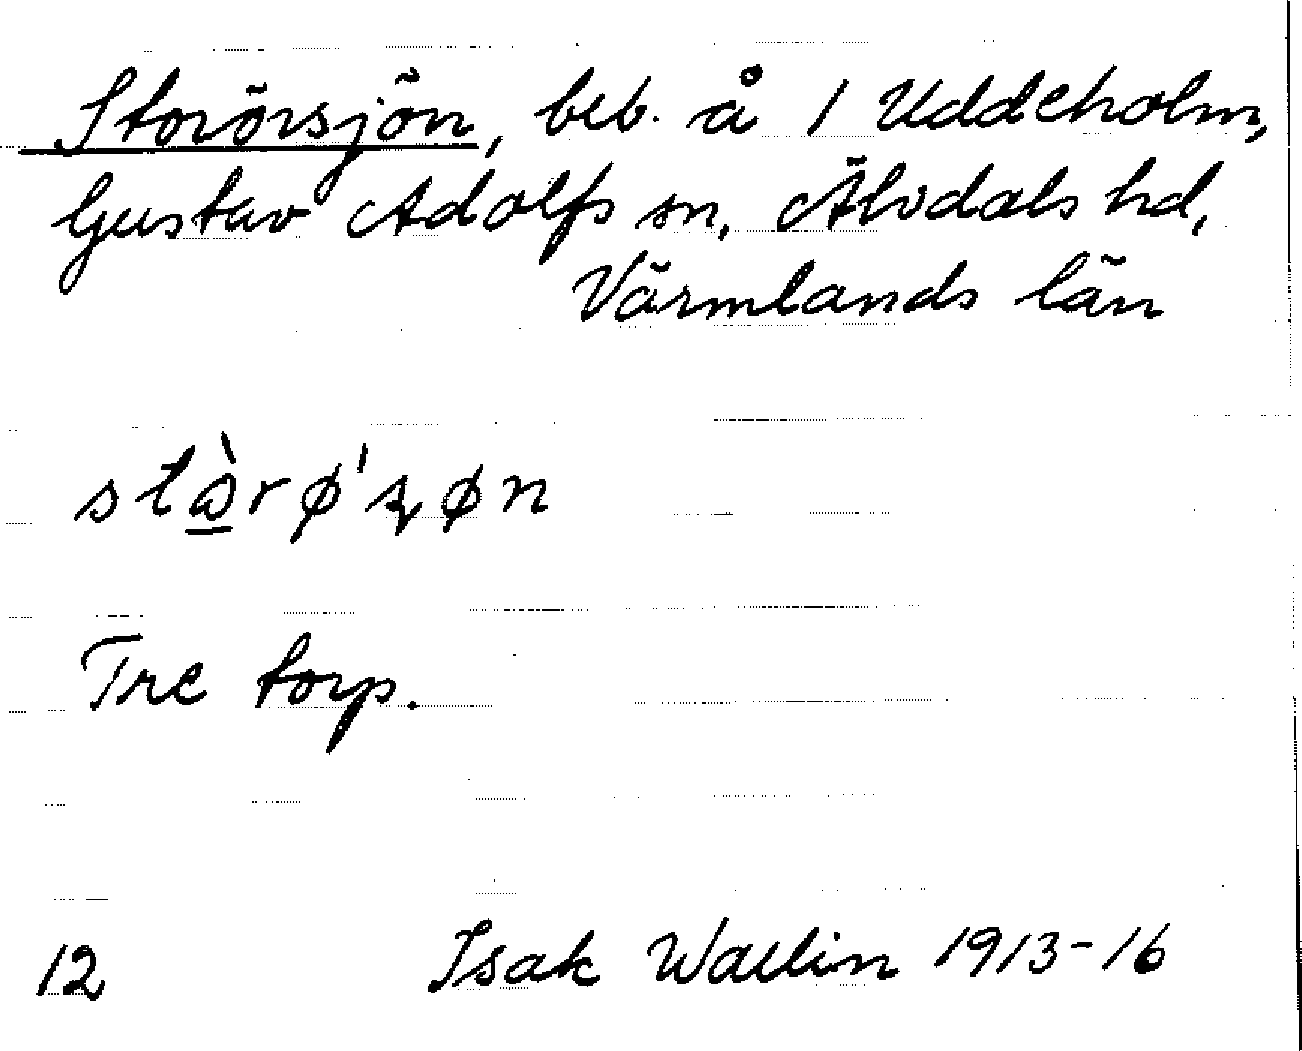 Storörsjön, beb. å 1 Uddeholm,
Gustav Adolfs sn, Älvdals hd,
Värmlands län
Tre torp.
12 Isak Wallin 1913-16